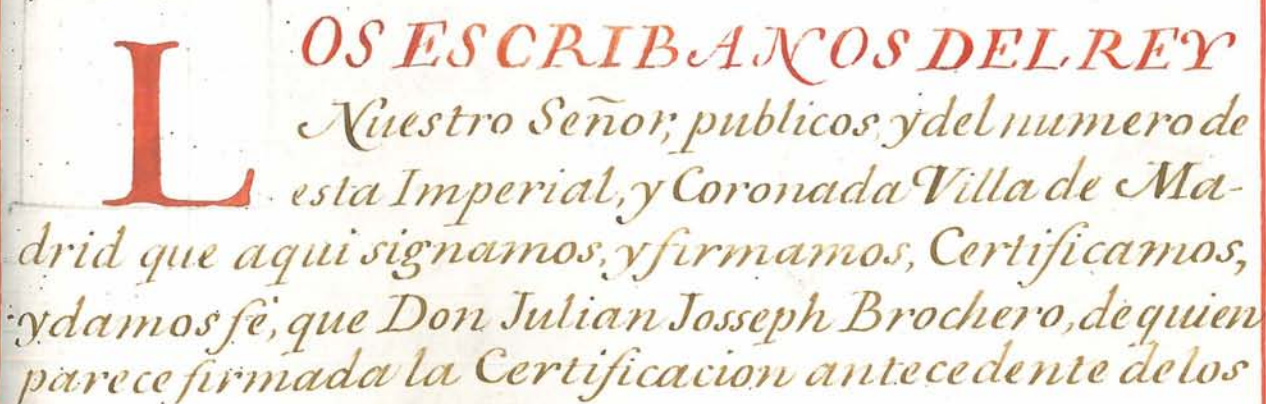 LOS ESCRIBANOS DEL REY
Nuestro Señor, publicos, y del numero de
esta Imperial, y Coronada Villa de Ma-
drid que aqui signamos, y firmamos, Certificamos,
y damos fè, que Don Julian Josseph Brochero, de quien
parece firmada la Certificacion antecedente de los